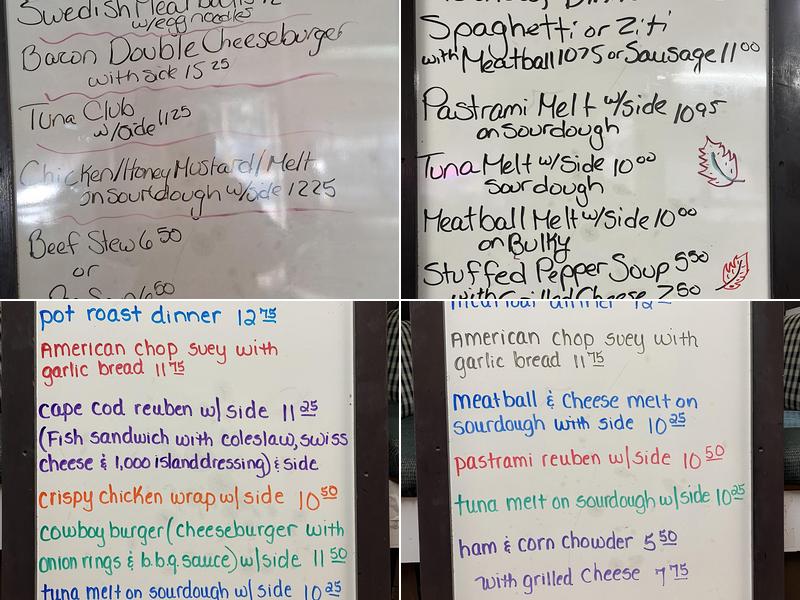 Swedish Meatballs 12
w/egg noodles
Bacon Double Cheeseburger
with side 15 25
Tuna Club
w/side 11 25
Chicken/Honey Mustard/Melt
on sourdough w/side 12 25
Beef Stew 6 50
or
Spaghetti or Ziti
with Meatball 10 75 or Sausage 11 00
Pastrami Melt w/side 10 95
on sourdough
Tuna Melt w/side 10 00
sourdough
Meatball Melt w/side 10 00
on Bulky
Stuffed Pepper Soup 5 50
with Grilled Cheese 7 50
pot roast dinner 12 75
American chop suey with
garlic bread 11 75
cape cod reuben w/ side 11 25
(Fish sandwich with coleslaw, swiss
cheese & 1,000 island dressing) & side
crispy chicken wrap w/ side 10 50
cowboy burger (cheeseburger with
onion rings & b.b.q. sauce) w/ side 11 50
tuna melt on sourdough w/ side 10 25
American chop suey with
garlic bread 11 75
meatball & cheese melt on
sourdough with side 10 25
pastrami reuben w/ side 10 50
tuna melt on sourdough w/ side 10 25
ham & corn chowder 5 50
with grilled cheese 7 75